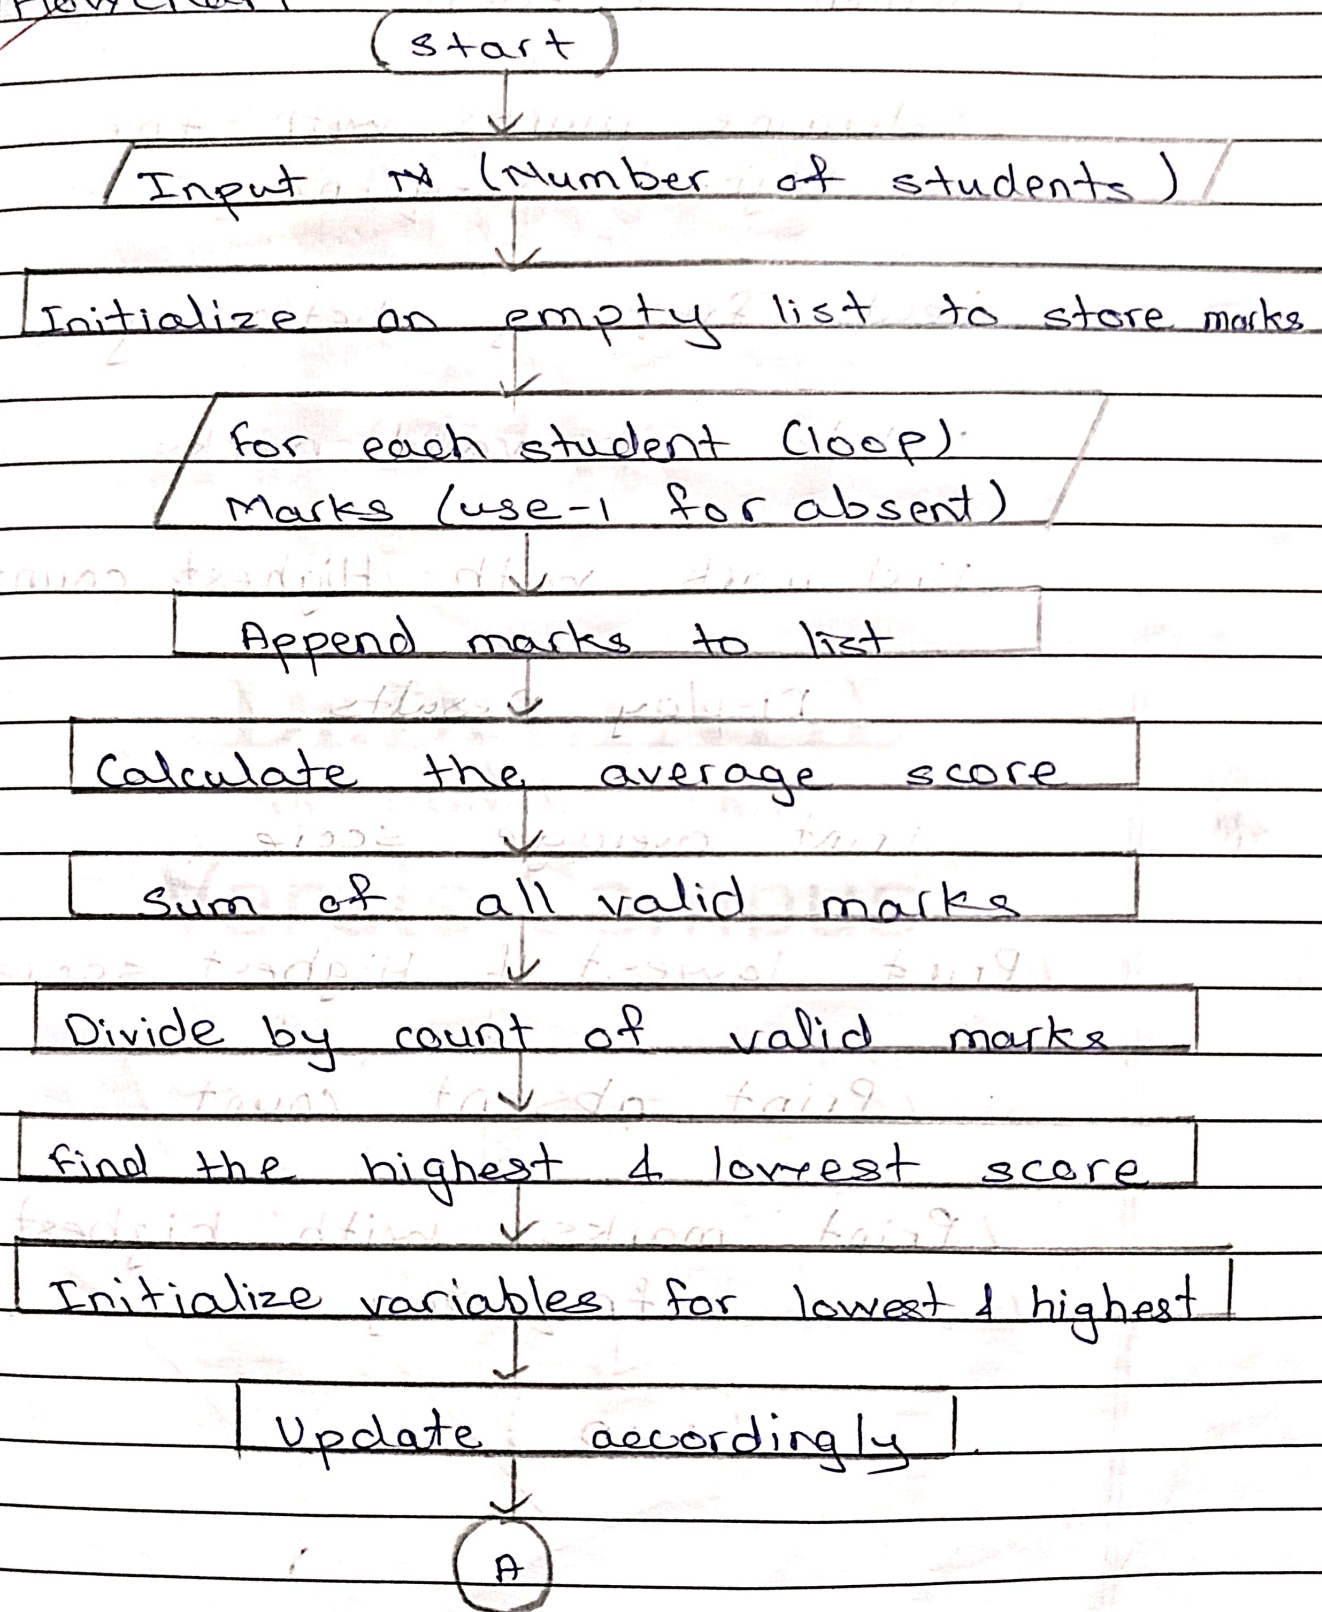 Flow Chart
Start
Input N (Number of students)
Initialize an empty list to store marks
for each student (loop)
Marks (use -1 for absent)
Append marks to list
Calculate the average score
Sum of all valid marks
Divide by count of valid marks
find the highest & lowest score
Initialize variables for lowest & highest
Update accordingly
A